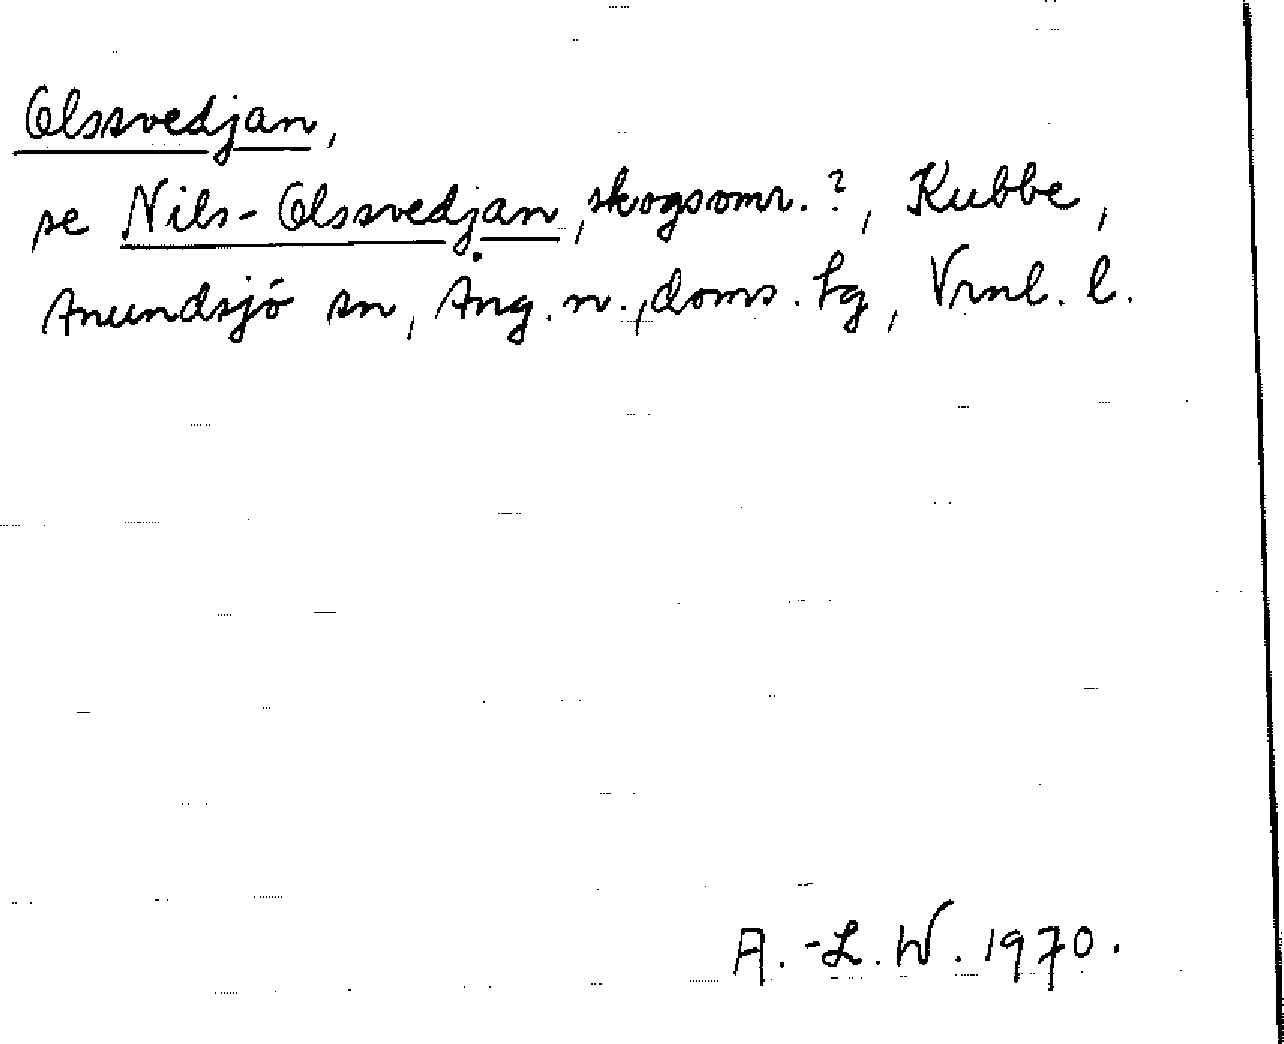 Olssvedjan,
se Nils-Olssvedjan, skogsomr.?, Kubbe,
Anundsjö sn, Ång. n., doms. hg, Vrnl. l.
A.-L. W. 1970.